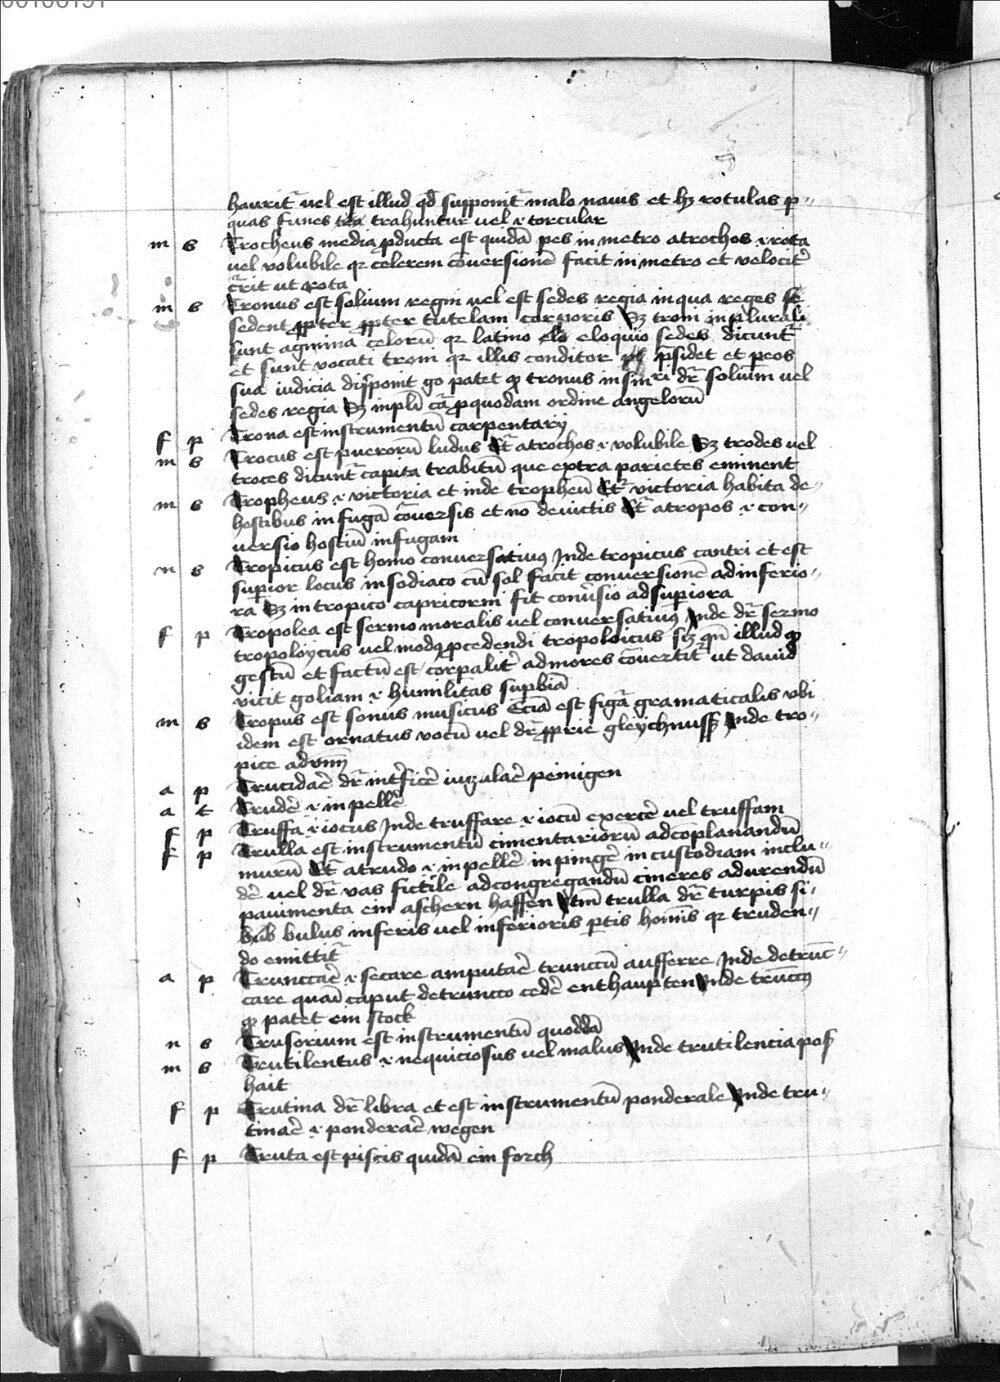 00100191
haurit᷑ uel est illud qd̄ supponit᷑ malo nauis et hꝫ rotulas p̱
quas funes tra trahuntur uel ⁊ torcular
m s Trocheus media ꝓducta est quidā pes in metro atrochos ⁊ rota
uel volubile qꝛ celerem cōuersionē facit in metro et velocit᷑
c̄rit ut rota
m s Tronus est solium regni uel est sedes regia in qua reges se
sedent ꝓpter ꝓpter tutelam corporis Sꝫ troni in plurali
sunt agmina celorū qꝛ latino elo eloquio sedes dicunt᷑
et sunt vocati troni qꝛ illis conditor p̄sidet et p̱ eos
sua iudicia disponit g̊ patet ꝙ tronus in sin̄ri dr̄ solium uel
sedes regia Sꝫ in pl̄i cā ꝓ quodam ordine angelorū
f p Trona est instrumentū carpentarij
m s Trocus est puerorū ludus Et᷑ atrochos ⁊ volubile Sꝫ trodes uel
troces dicunt᷑ capita trabitū que extra parietes eminent
m s Tropheus ⁊ victoria et inde tropheū Et᷑ victoria habita de
hostibus in fugā cōuersis et no deuictis Et᷑ atropos ⁊ con
uersio hostiū in fugam
m s Tropicus est homo conuersatiuꝰ Inde tropicus cantri et est
sup̱ior locus in sodiaco cū sol facit conuersionē ad inferio
ra Sꝫ in tropico capricorni fit conūsio ad sup̱iora
f p Tropolea est sermo moralis uel conuersatiuꝰ Inde dr̄ sermo
tropoloycus uel modꝰ ꝓcedendi tropoloicus scꝫ qn̄ illud ꝙ
gestū et factū est corp̱alit᷑ ad mores cōuertit᷑ ut dauid
vicit goliam ⁊ humilitas sup̱biā
m s Tropus est sonus musicus Eciā est figᷓa gramaticalis vbi
idem est ornatus vocū uel dr̄ ꝓprie gleychnuss Inde tro
pice adv̄m
a p Trucidaē dr̄ int᷑ficē iugulaē peinigen
a t Trudē ⁊ inpellē
f p Truffa ⁊ iocus Inde truffare ⁊ iocū exercē uel truffam
f p Trulla est instrumentū cimentariorū ad coplanandū
murū Et᷑ atrudo ⁊ inpellē inpingē in custodiam inclu
dē uel dr̄ vas fictile ad congregandū cineres adurendū
pauimenta ein aschern haffen Itm̄ trulla dr̄ turpis si
bub bulus inferis uel inferioris p̱tis homīs qꝛ truden
do emittit᷑
a p Trunccaē ⁊ secare amputaē trunccū aufferre Inde detrunc
care quasi caput detruncco cedē enthaupten Inde trūccꝰ
ꝙ patet ein stock
n s Trusorium est instrumentū quoddā
m s Trutilentus ⁊ nequiciosus uel malus Inde trutilencia pos
hait
f p Trutina dr̄ libra et est instrumentū ponderale Inde tru
tinaē ⁊ ponderaē wegen
f p Truta est piscis quidā ein forch